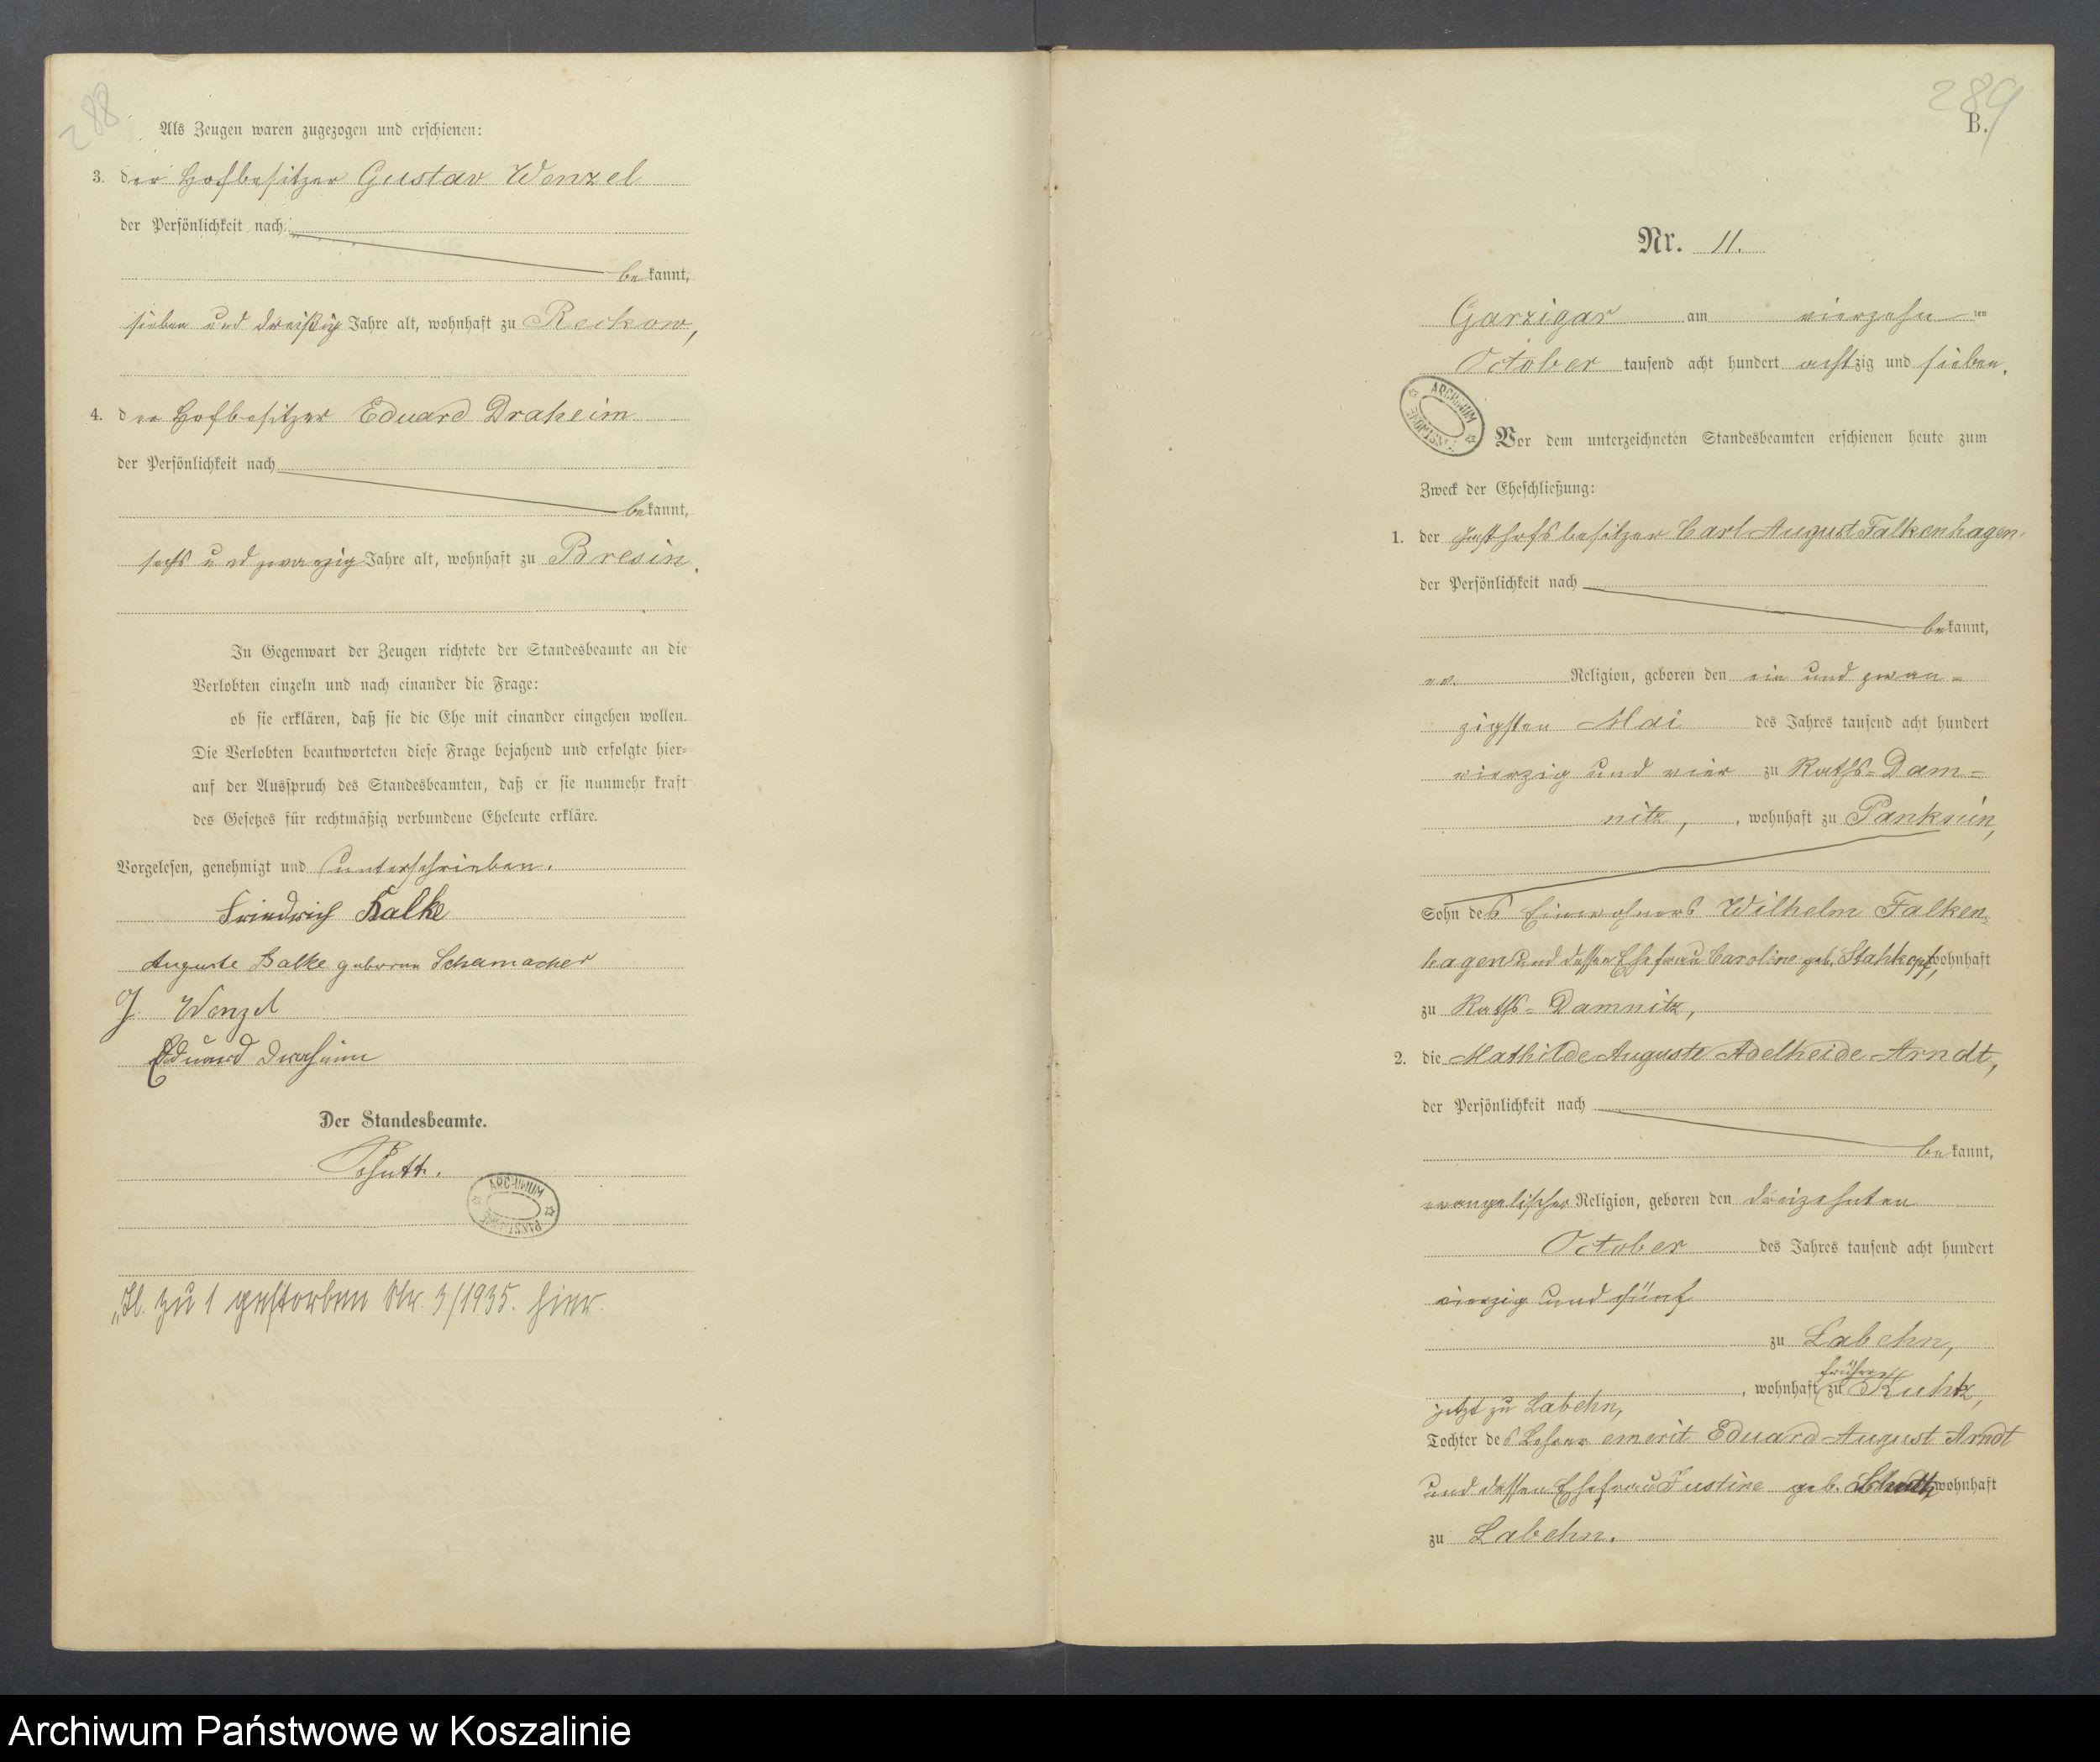 288
Als Zeugen waren zugezogen und erschienen:
3. der Hofbesitzer Gustav Wenzel
der Persönlichkeit nach
bekannt,
sieben und dreißig Jahre alt, wohnhaft zu Reckow,
4. der Hofbesitzer Eduard Draheim
der Persönlichkeit nach
bekannt,
sechs und zwanzig Jahre alt, wohnhaft zu Bresin.
In Gegenwart der Zeugen richtete der Standesbeamte an die
Verlobten einzeln und nach einander die Frage:
ob sie erklären, daß sie die Ehe mit einander eingehen wollen.
Die Verlobten beantworteten diese Frage bejahend und erfolgte hier-
auf der Ausspruch des Standesbeamten, daß er sie nunmehr kraft
des Gesetzes für rechtmäßig verbundene Eheleute erkläre.
Vorgelesen, genehmigt und unterschrieben.
Friedrich Balke
Auguste Balke geborene Schumacher
G. Wenzel
Eduard Draheim
Der Standesbeamte.
ARCHIWUM
zu 1 gestorben Nr. 3/1935. hier.
289
B.
Nr. 11.
Garzigar am vierzehn ten
October tausend acht hundert achtzig und sieben.
ARCHIWUM
Vor dem unterzeichneten Standesbeamten erschienen heute zum
Zweck der Eheschließung:
1. der Gasthofsbesitzer Carl August Falkenhagen,
der Persönlichkeit nach
bekannt,
ev. Religion, geboren den ein und zwan=
zigsten Mai des Jahres tausend acht hundert
vierzig und vier zu Raths=Dam=
nitz, , wohnhaft zu Panknin,
Sohn des Einwohners Wilhelm Falken=
hagen und dessen Ehefrau Caroline geb. Stahkopf, wohnhaft
zu Raths=Damnitz,
2. die Mathilde Auguste Adelheide Arndt,
der Persönlichkeit nach
bekannt,
evangelischer Religion, geboren den dreizehnten
October des Jahres tausend acht hundert
vierzig und fünf
zu Labehn,
früher
, wohnhaft zu Kuhtz,
jetzt zu Labehn,
Tochter des Lehrer emerit Eduard August Arndt
und dessen Ehefrau Justine geb. wohnhaft
zu Labehn.
Archiwum Państwowe w Koszalinie